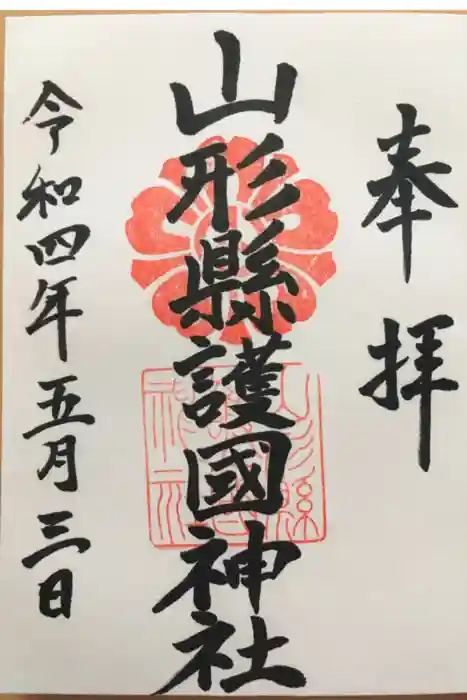 奉拝
山形縣護國神社
令和四年五月三日